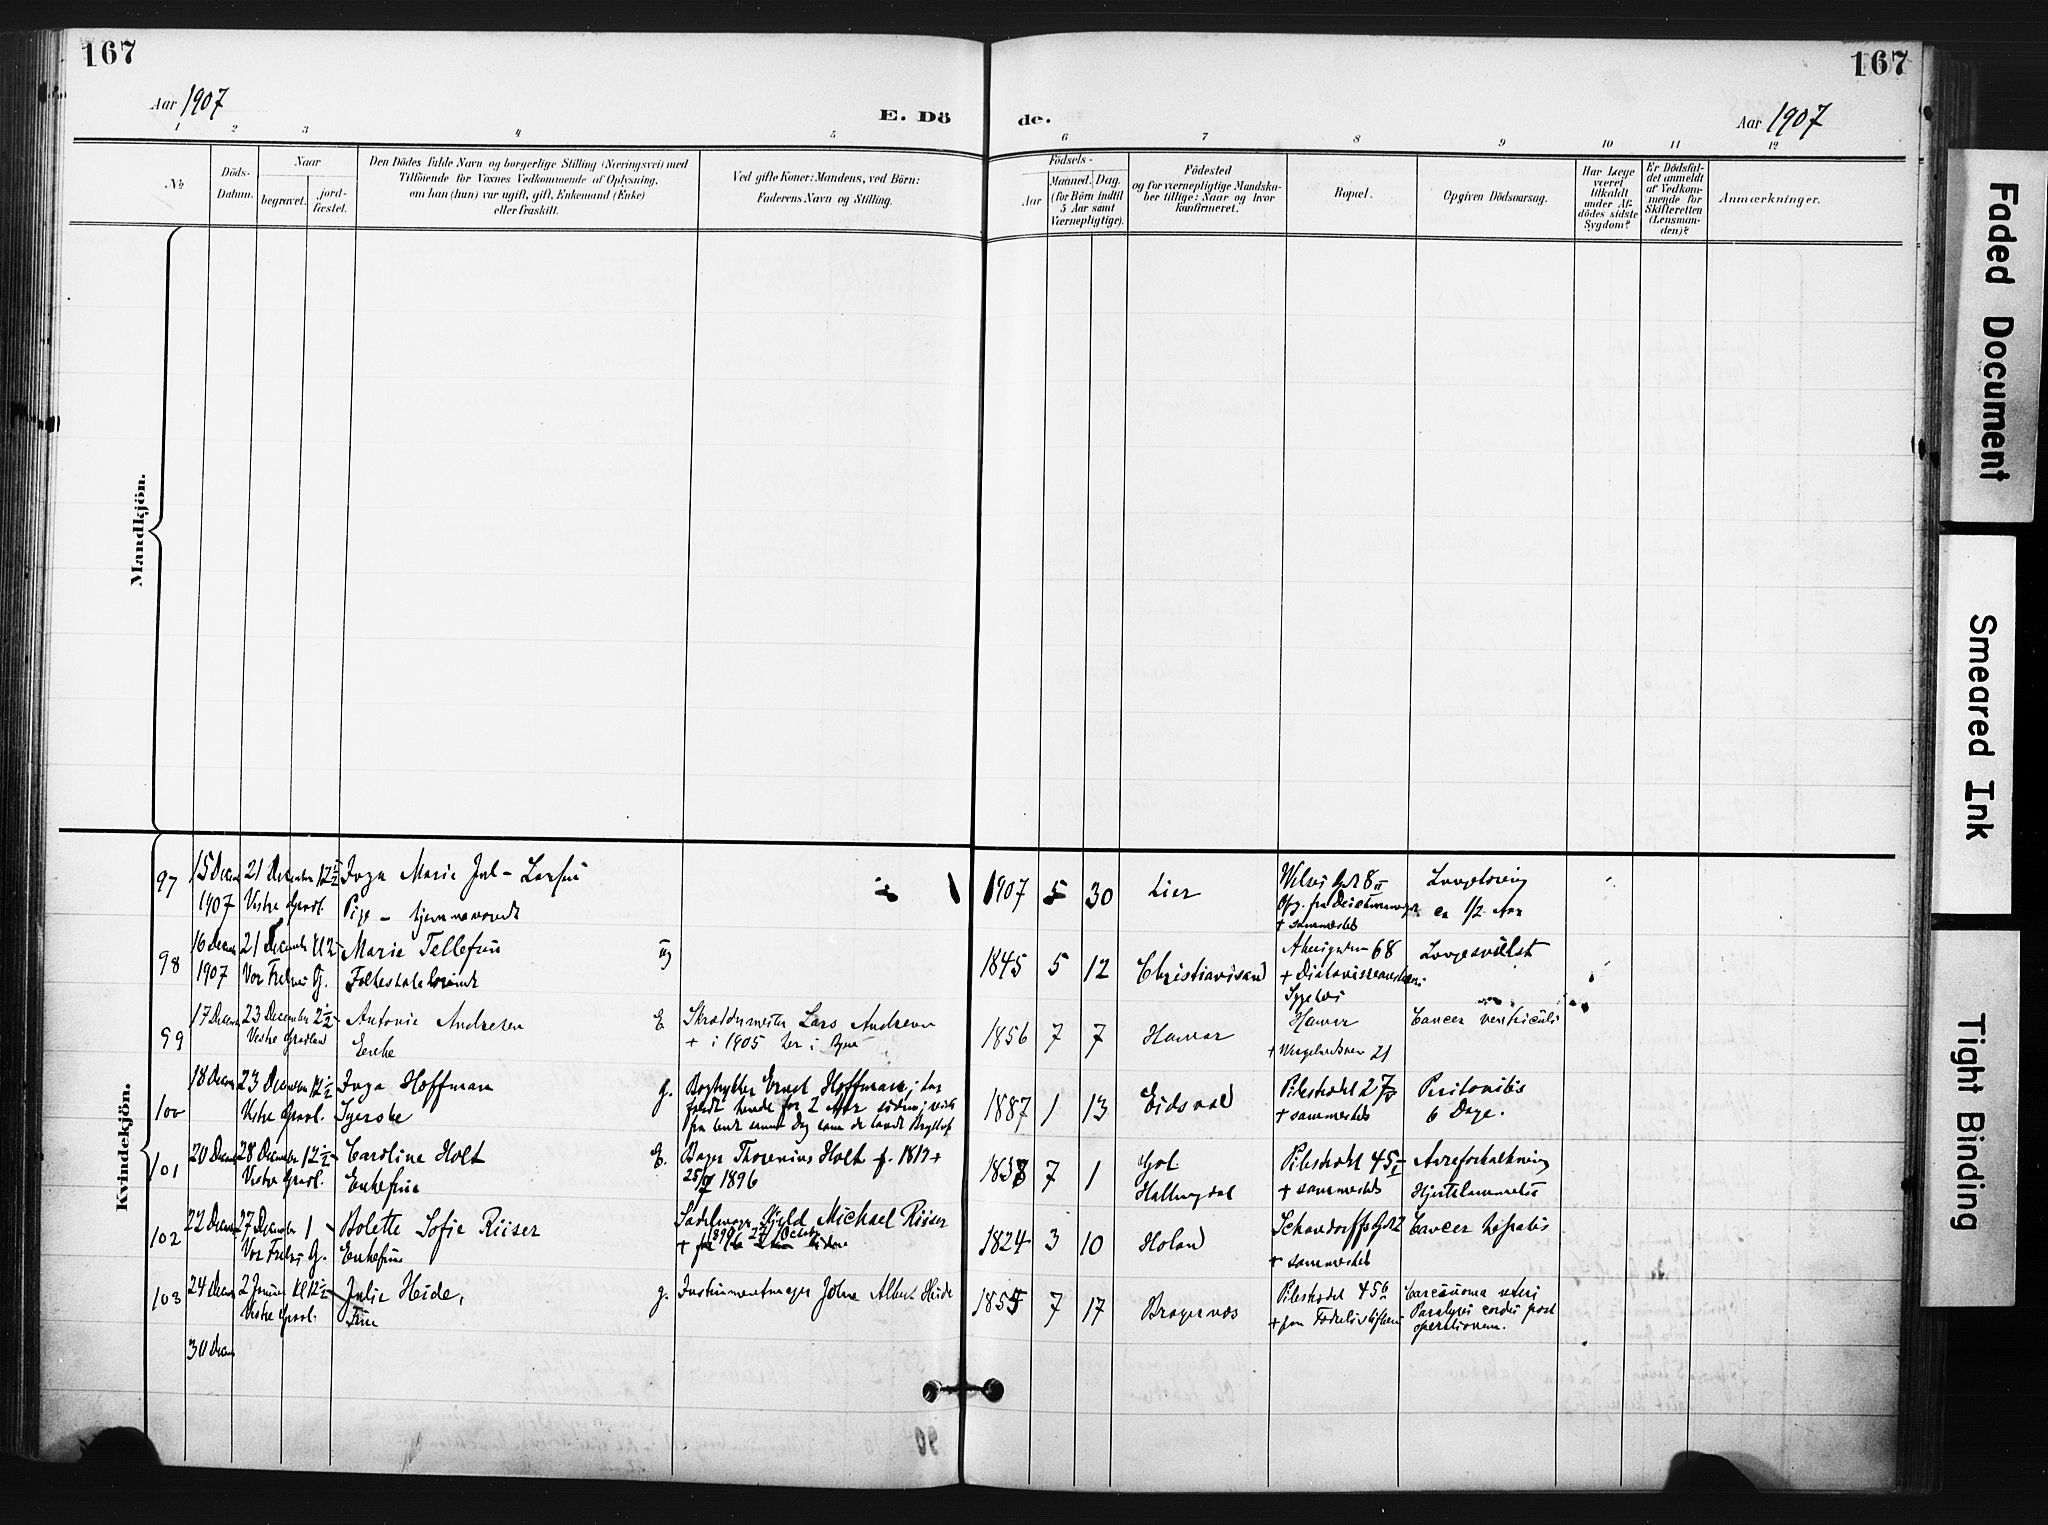 167
167
Aar 1907
E. Dö
de.
Aar 1907
1 2 3 4 5 6 7 8 9 10 11 12
№
Döds-
Datum.
Naar
begravet.
jord-
fæstet.
Den Dödes fulde Navn og borgerlige Stilling (Næringsvei) med
Tilföiende for Voxnes Vedkommende af Oplysning,
om han (hun) var ugift, gift, Enkemand (Enke)
eller fraskilt.
Ved gifte Koner: Mandens, ved Börn:
Faderens Navn og Stilling.
Födsels-
Aar
Maaned.
Dag.
(for Börn indtil
5 Aar samt
Værnepligtige).
Födested
og for værnepligtige Mandska-
ber tillige: Naar og hvor
konfirmeret.
Bopæl.
Opgiven Dödsaarsag.
Har Læge
været
tilkaldt
under Af-
dödes sidste
Sygdom?
Er Dödsfal-
det anmeldt
af Vedkom-
mende for
Skifteretten
(Lensman-
den)?
Anmærkninger.
Mandkjön.
Kvindekjön.
97
15 Decem
1907
21 December 12½
Vestre Gravl.
Inga Marie Jul-Larsen
Pige - hjemmeværende
1907 5 30
Lier
+ sammesteds
ca 1/2 Aar
98
16 Decem
1907
21 December Kl 2
Vor Frelsers G.
Marie Tellefsen
ug
1845 5 12
Christiansand
68
+ Diakonisseanstaltens
Sygehus
99
17 Decem
23 December 2½
Vestre Gravlund
Antonie Andresen
Enke
E
Skræddermester Lars Andresen
+ i 1905 her i Byen
1856 7 7
Hamar
Hamar
+ Wergelandsveien 21
Cancer ventriculi
100
18 Decem
23 Decem 12½
Vestre Gravl.
Inga Hoffman
Syerske
g.
Ernst Hoffman; har
1887 1 13
Eidsvold
Pilestrædet 27
+ sammesteds
Peritonitis
6 Dage.
101
20 Decem
28 December 12½
Vestre Gravl.
Caroline Holt
Enkefrue
E.
Bager Thorenius Holt f. 1817 +
25/7 1896
7 1
Gol
Hallingdal
Pilestrædet 45
+ sammesteds
Areforkalkning
Hjertelammelse
102
22 Decem
27 December 1
Vor Frelsers G.
Bolette Sofie Riiser
Enkefrue
Sadelmager Kjeld Michael Riiser
1824 3 10
Holand
+ sammesteds
Cancer hepatis
103
24 Decem
2 Januar Kl 12½
Vestre Gravl.
Julie Heide,
Frue
g.
Instrumentmager Johan Albert Heide
1855 7 17
Bragernæs
Pilestrædet 45
+ paa Fødselsstiftelsen
Carcinoma uteri
Paralysis cordis post
operationem.
30 Decem
Faded Document
Smeared Ink
Tight Binding